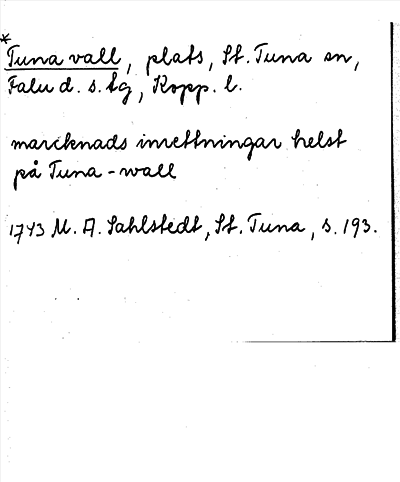 *
Tuna vall, plats, St. Tuna sn,
Falu d. s. tg, Kopp. l.
marcknads inrettningar helst
på Tuna-wall
1743 M. A. Sahlstedt, St. Tuna, s. 193.